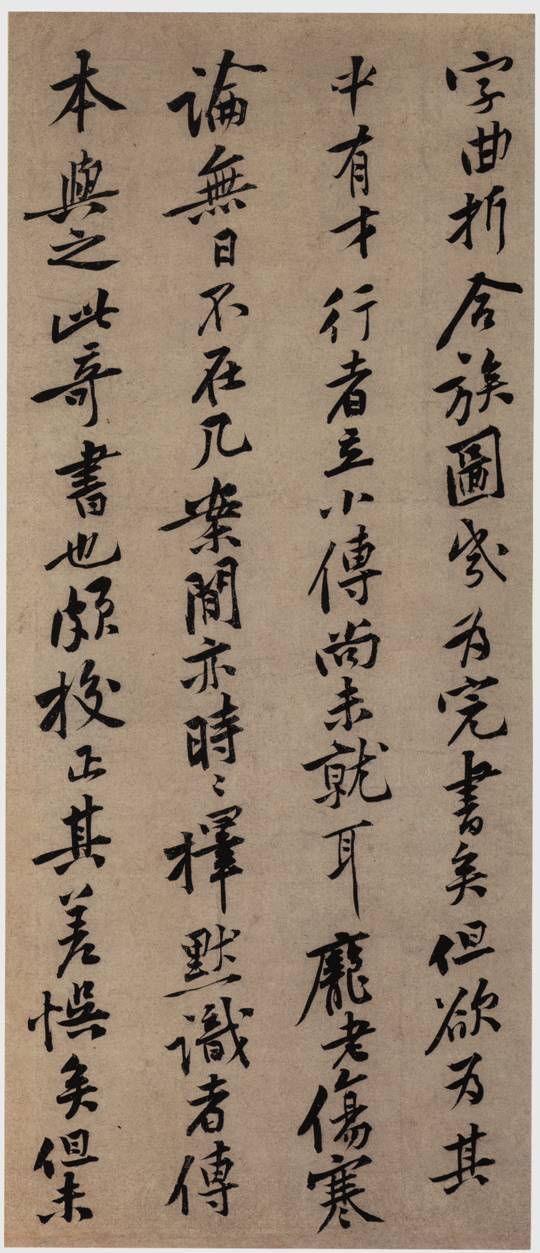 字曲折合族圖幾為完書矣但欲為其
中有才行者立小傳尚未就耳龐老傷寒
論無日不在几案間亦時〻擇默識者傳
本與之此奇書也頗校正其差悮矣但未